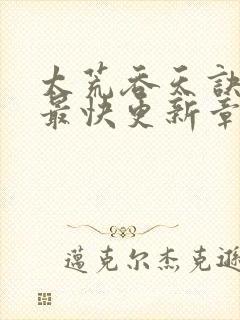 大荒吞天訣
最快更新章
邁克尔杰克遜